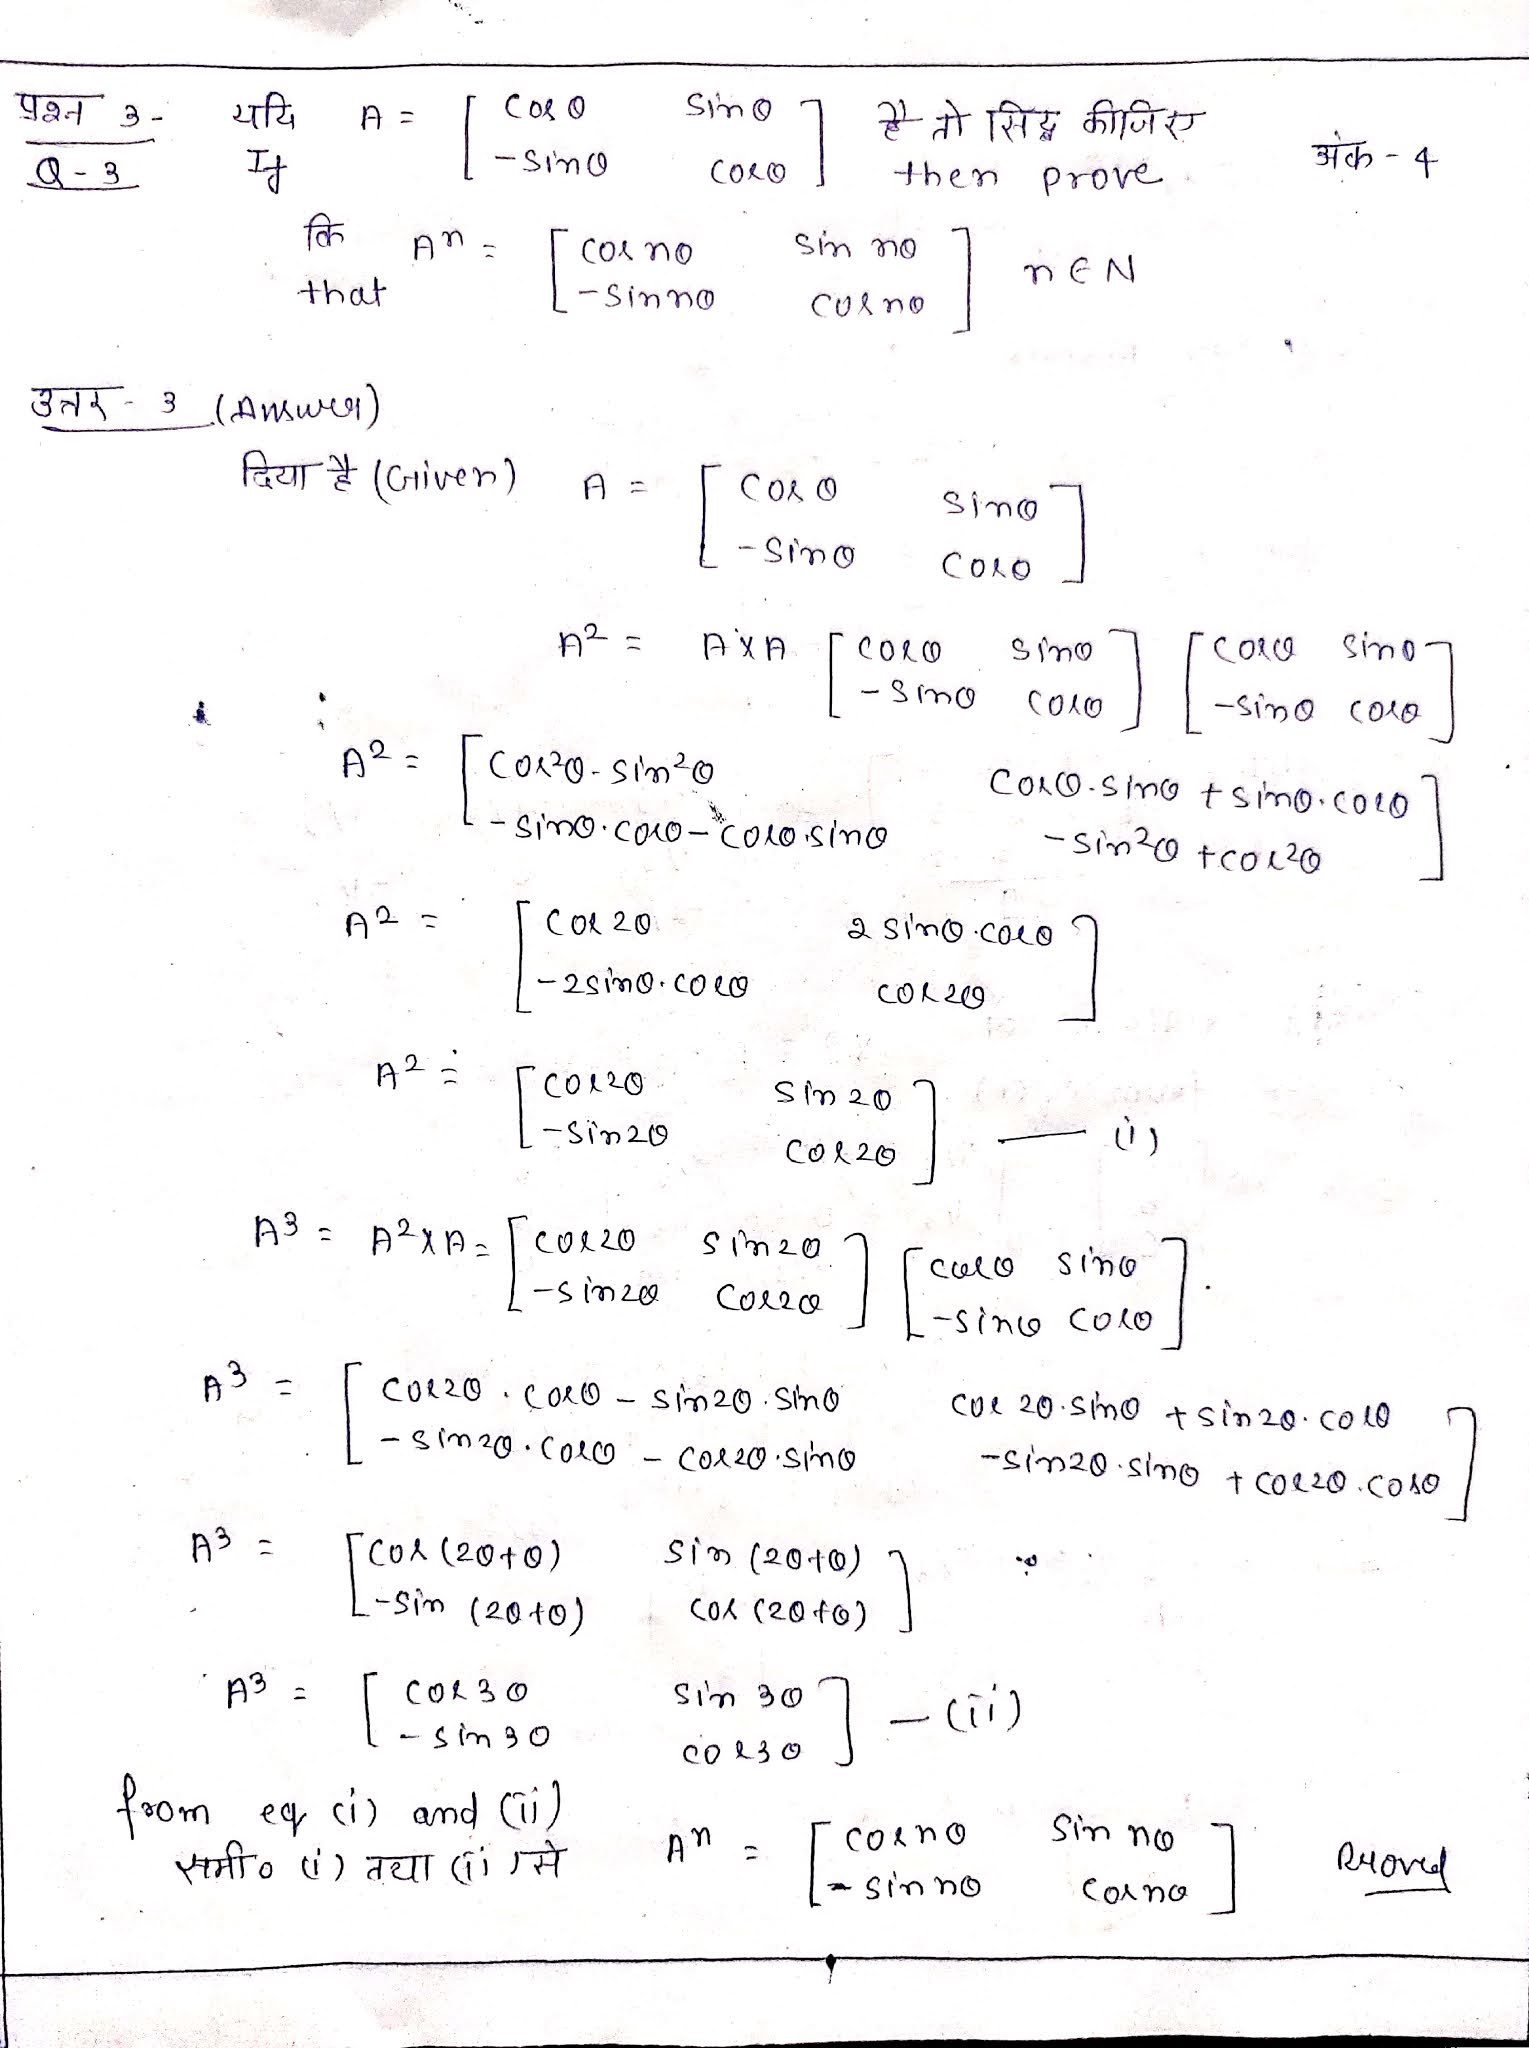 प्रश्न 3- यदि A = [ cosθ sinθ ] है तो सिद्ध कीजिए
Q-3 If [ -sinθ cosθ ] then prove अंक-4
कि Aⁿ = [ cosnθ sin nθ ] n∈N
that [ -sinnθ cosnθ ]
उत्तर-3 (Answer)
दिया है (Given) A = [ cosθ sinθ ]
[ -sinθ cosθ ]
A² = A×A [ cosθ sinθ ] [ cosθ sinθ ]
[ -sinθ cosθ ] [ -sinθ cosθ ]
A² = [ cos²θ-sin²θ cosθ.sinθ + sinθ.cosθ ]
[ -sinθ.cosθ-cosθ.sinθ -sin²θ +cos²θ ]
A² = [ cos2θ 2 sinθ.cosθ ]
[ -2sinθ.cosθ cos2θ ]
A² = [ cos2θ sin2θ ] — (i)
[ -sin2θ cos2θ ]
A³ = A²×A = [ cos2θ sin2θ ] [ cosθ sinθ ]
[ -sin2θ cos2θ ] [ -sinθ cosθ ]
A³ = [ cos2θ.cosθ - sin2θ.sinθ cos 2θ.sinθ + sin2θ.cosθ ]
[ -sin2θ.cosθ - cos2θ.sinθ -sin2θ.sinθ + cos2θ.cosθ ]
A³ = [ cos(2θ+θ) sin(2θ+θ) ]
[ -sin (2θ+θ) cos(2θ+θ) ]
A³ = [ cos3θ sin 3θ ] — (ii)
[ -sin3θ cos3θ ]
from eq (i) and (ii)
समी० (i) तथा (ii) से Aⁿ = [ cosnθ sin nθ ] Proved
[ -sinnθ cosnθ ]